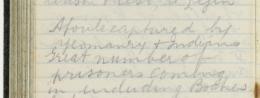 Afoule captured by
yeomanry & Indians
Great number of
prisoners coming
in including Boches